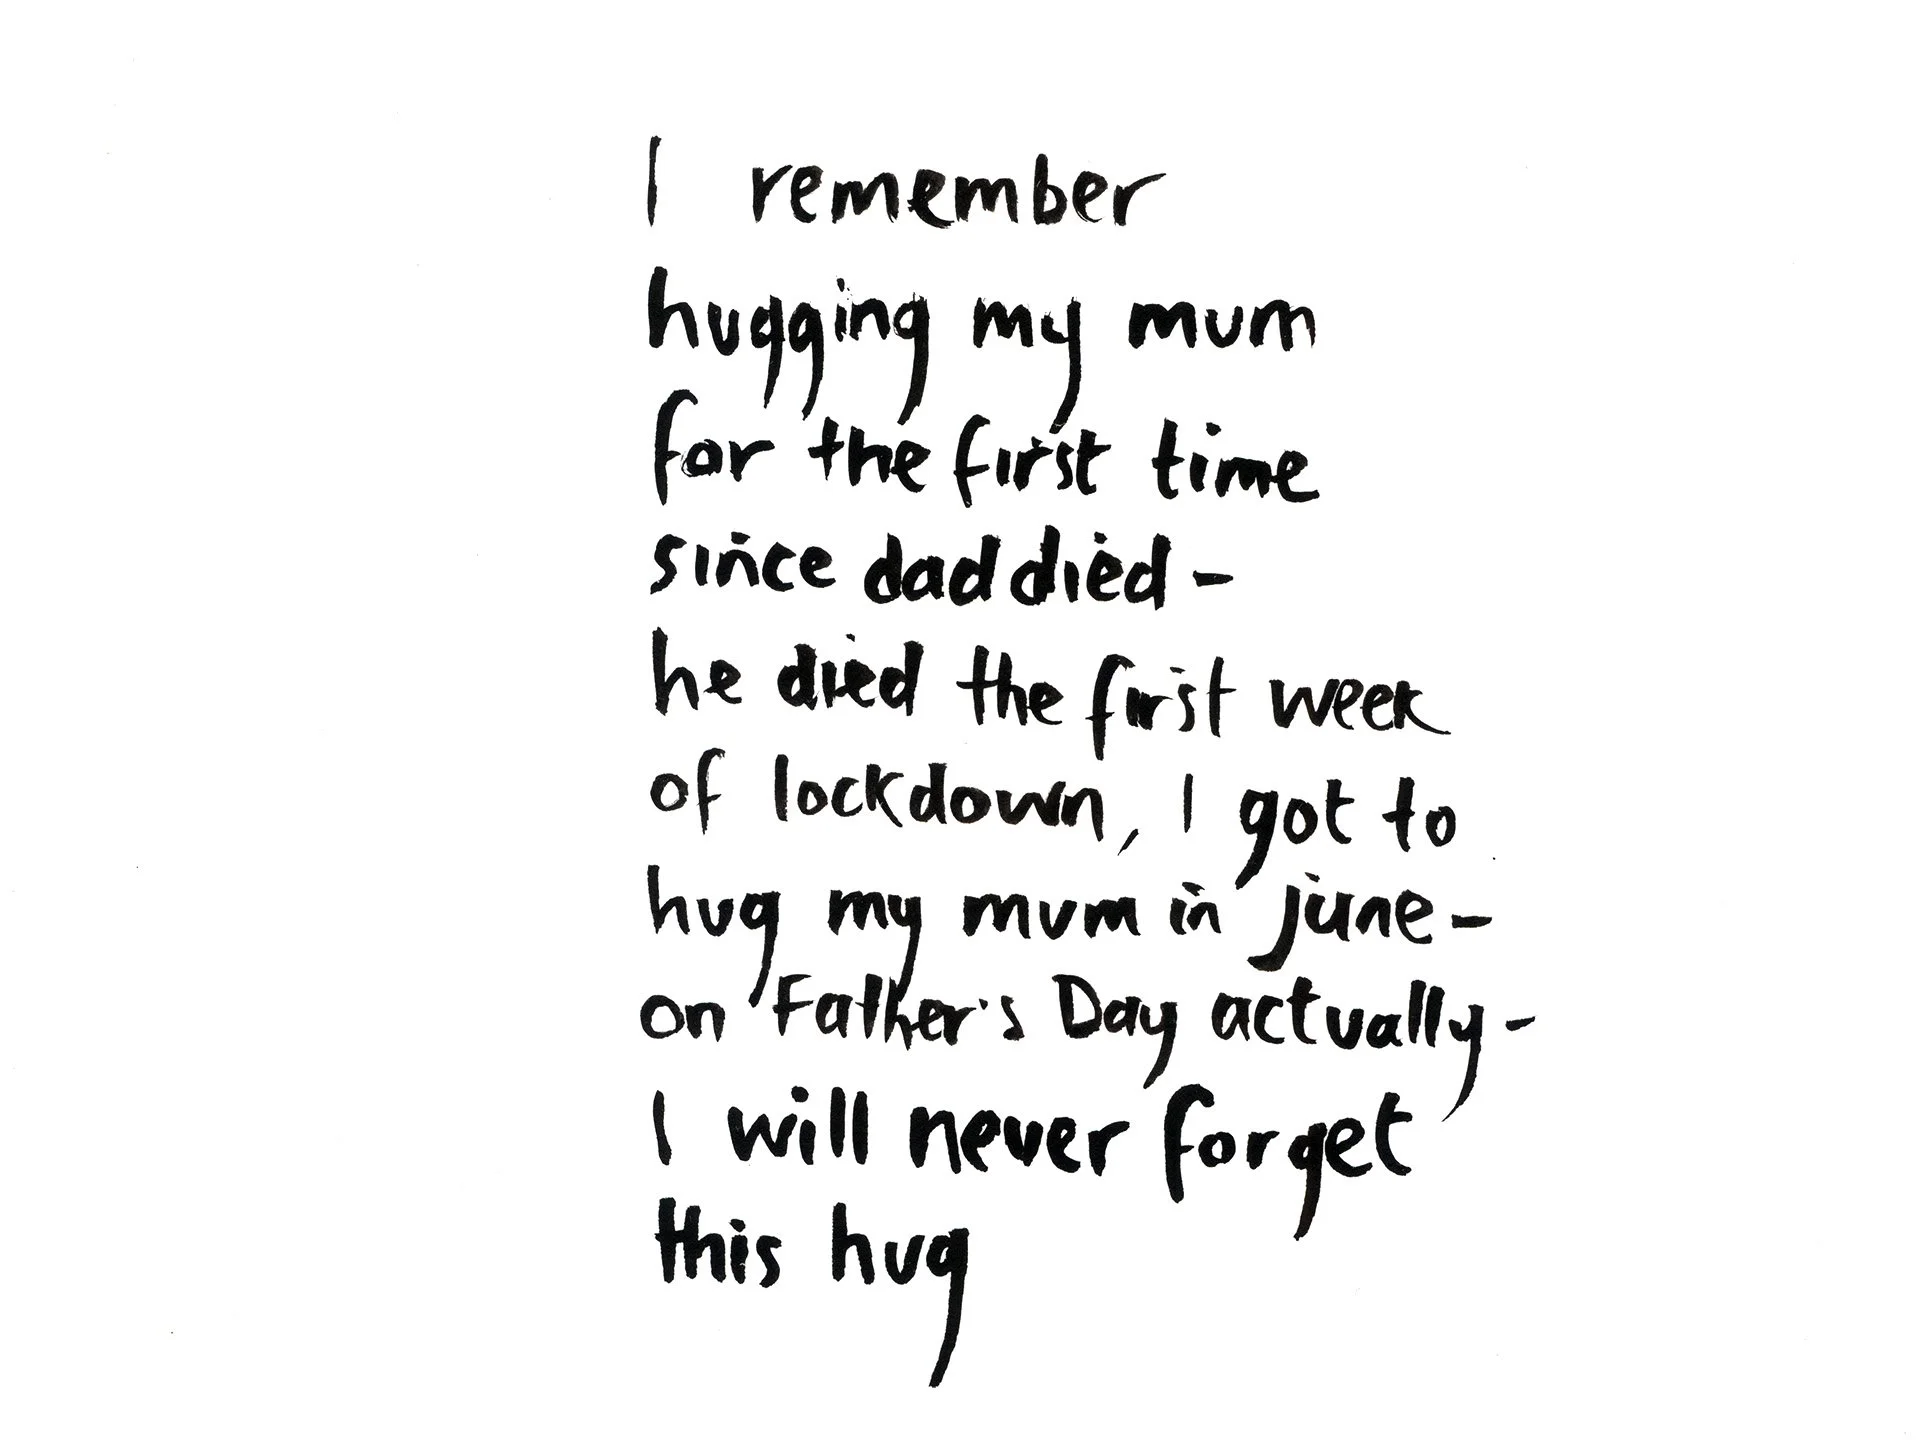 I remember
hugging my mum
for the first time
since dad died -
he died the first week
of lockdown, I got to
hug my mum in june -
on Father's Day actually -
I will never forget
this hug